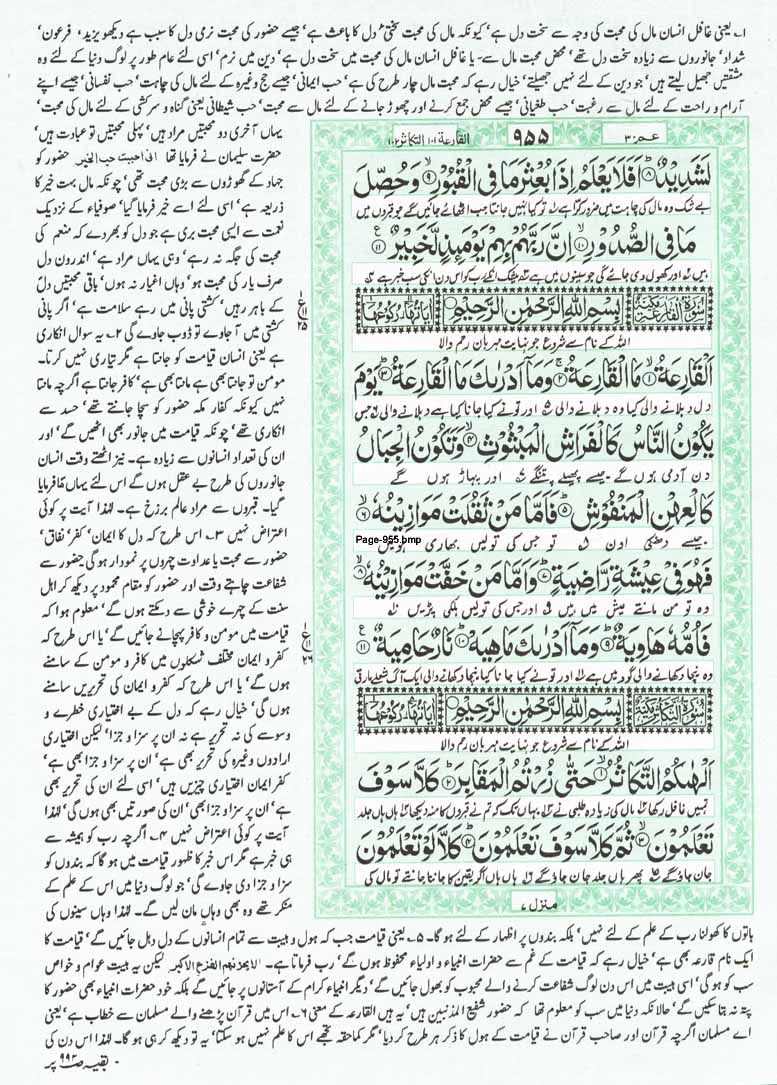 ۱۔ یعنی غافل انسان مال کی محبت کی وجہ سے سخت دل ہے' کیونکہ مال کی محبت سختی دل کا باعث ہے' جیسے حضور کی محبت نرمی دل کا سبب ہے دیکھو یزید' فرعون'
شداد' جانوروں سے زیادہ سخت دل تھے' محض محبت مال سے۔ یا غافل انسان مال کی محبت میں سخت دل ہے' دین میں نرم' اسی لئے عام طور پر لوگ دنیا کے لئے وہ
مشقتیں جھیل لیتے ہیں' جو دین کے لئے نہیں جھیلتے' خیال رہے کہ محبت مال چار طرح کی ہے' حب ایمانی' جیسے حج وغیرہ کے لئے مال کی چاہت' حب نفسانی' جیسے اپنے
آرام و راحت کے لئے مال سے رغبت' حب طغیانی' جیسے محض جمع کرنے اور چھوڑ جانے کے لئے مال سے محبت' حب شیطانی یعنی گناہ و سرکشی کے لئے مال کی محبت'
عمّ ۳۰ ۹۵۵ القارعة ۱۰۱ التکاثر ۱۰۲
لَشَدِيْدٌ ۸ اَفَلَا يَعْلَمُ اِذَا بُعْثِرَ مَا فِي الْقُبُوْرِ ۹ وَحُصِّلَ
بے شک وہ مال کی چاہت میں ضرور کرّا ہے تو کیا نہیں جانتا جب اٹھائے جائیں گے جو قبروں میں
مَا فِي الصُّدُوْرِ ۱۰ اِنَّ رَبَّهُمْ بِهِمْ يَوْمَئِذٍ لَّخَبِيْرٌ ۱۱
ہیں اور کھول دی جائے گی جو سینوں میں ہے بیشک ان کے رب کو اس دن ان کی سب خبر ہے
سورۃ القارعۃ مکیۃ بِسْمِ اللّٰهِ الرَّحْمٰنِ الرَّحِيْمِ اٰیاتہا ۱۱ رکوعہا
اللہ کے نام سے شروع جو نہایت مہربان رحم والا
اَلْقَارِعَةُ ۱ مَا الْقَارِعَةُ ۲ وَمَآ اَدْرٰىكَ مَا الْقَارِعَةُ ۳ يَوْمَ
دل دہلانے والی کیا وہ دہلانے والی اور تو نے کیا جانا کیا ہے دہلانے والی جس
يَكُوْنُ النَّاسُ كَالْفَرَاشِ الْمَبْثُوْثِ ۴ وَتَكُوْنُ الْجِبَالُ
دن آدمی ہوں گے جیسے پھیلے پتنگے اور پہاڑ ہوں گے
كَالْعِهْنِ الْمَنْفُوْشِ ۵ فَاَمَّا مَنْ ثَقُلَتْ مَوَازِيْنُهٗ ۶
جیسے دھنکی اون تو جس کی تولیں بھاری ہوئیں
Page-955.bmp
فَهُوَ فِيْ عِيْشَةٍ رَّاضِيَةٍ ۷ وَاَمَّا مَنْ خَفَّتْ مَوَازِيْنُهٗ ۸
وہ تو من مانتے عیش میں ہیں اور جس کی تولیں ہلکی پڑیں
فَاُمُّهٗ هَاوِيَةٌ ۹ وَمَآ اَدْرٰىكَ مَاهِيَهْ ۱۰ نَارٌ حَامِيَةٌ ۱۱
وہ نیچا دکھانے والی گود میں ہے اور تو نے کیا جانا کیا نیچا دکھانے والی ایک آگ شعلے مارتی
سورۃ التکاثر مکیۃ بِسْمِ اللّٰهِ الرَّحْمٰنِ الرَّحِيْمِ اٰیاتہا ۸ رکوعہا
اللہ کے نام سے شروع جو نہایت مہربان رحم والا
اَلْهٰىكُمُ التَّكَاثُرُ ۱ حَتّٰى زُرْتُمُ الْمَقَابِرَ ۲ كَلَّا سَوْفَ
تمہیں غافل رکھا مال کی زیادہ طلبی نے یہاں تک کہ تم نے قبروں کا منہ دیکھا ہاں ہاں جلد
تَعْلَمُوْنَ ۳ ثُمَّ كَلَّا سَوْفَ تَعْلَمُوْنَ ۴ كَلَّا لَوْ تَعْلَمُوْنَ
جان جاؤ گے پھر ہاں ہاں جلد جان جاؤ گے ہاں ہاں اگر یقین کا جاننا جانتے تو مال کی
منزل ۷
یہاں آخری دو محبتیں مراد ہیں' پہلی محبتیں تو عبادت ہیں'
حضرت سلیمان نے فرمایا تھا انی احببت حب الخیر حضور کو
جہاد کے گھوڑوں سے بڑی محبت تھی' چونکہ مال بہت خیر کا
ذریعہ ہے' اسی لئے اسے خیر فرمایا گیا' صوفیاء کے نزدیک
نعمت سے ایسی محبت بری ہے جو دل کو بھر دے کہ منعم کی
محبت کی جگہ نہ رہے' وہی یہاں مراد ہے' اندرون دل
صرف یار کی محبت ہو' وہاں اغیار نہ ہوں' باقی محبتیں دل
کے باہر رہیں' کشتی پانی میں رہے سلامت ہے' اگر پانی
کشتی میں آ جاوے تو ڈوب جاوے گی ۲۔ یہ سوال انکاری
ہے یعنی انسان قیامت کو جانتا ہے مگر تیاری نہیں کرتا۔
مومن تو جانتا بھی ہے مانتا بھی ہے' کافر جانتا ہے اگرچہ مانتا
نہیں کیونکہ کفار مکہ حضور کو سچا جانتے تھے' حسد سے
انکاری تھے' چونکہ قیامت میں جانور بھی اٹھیں گے' اور
ان کی تعداد انسانوں سے زیادہ ہے۔ نیز اٹھتے وقت انسان
جانوروں کی طرح بے عقل ہوں گے اس لئے یہاں مَا فرمایا
گیا۔ قبروں سے مراد عالم برزخ ہے۔ لہٰذا آیت پر کوئی
اعتراض نہیں ۳۔ اس طرح کہ دل کا ایمان' کفر' نفاق'
حضور سے محبت یا عداوت چہروں پر نمودار ہو گی حضور سے
شفاعت چاہتے وقت اور حضور کو مقام محمود پر دیکھ کر اہل
سنت کے چہرے خوشی سے دمکتے ہوں گے' معلوم ہوا کہ
قیامت میں مومن و کافر پہچانے جائیں گے' یا اس طرح کہ
کفر و ایمان مختلف شکلوں میں کافر و مومن کے سامنے
ہوں گے' یا اس طرح کہ کفر و ایمان کی تحریریں سامنے
ہوں گی' خیال رہے کہ دل کے بے اختیاری خطرے و
وسوسے کی نہ تحریر ہے نہ ان پر سزا و جزا' لیکن اختیاری
ارادوں وغیرہ کی تحریر بھی ہے' ان پر سزا و جزا بھی ہے'
کفر ایمان اختیاری چیزیں ہیں' اسی لئے ان کی تحریر بھی
ہے' ان پر سزا و جزا بھی' ان کی صورتیں بھی ہوں گی' لہٰذا
آیت پر کوئی اعتراض نہیں ۴۔ اگرچہ رب کو ہمیشہ سے
ہی خبر ہے مگر اس خبر کا ظہور قیامت میں ہو گا کہ بندوں کو
سزا و جزا دی جاوے گی' جو لوگ دنیا میں اس کے علم کے
منکر تھے وہ بھی وہاں مان لیں گے۔ لہٰذا وہاں سینوں کی
باتوں کا کھولنا رب کے علم کے لئے نہیں' بلکہ بندوں پر اظہار کے لئے ہو گا۔ ۵۔ یعنی قیامت جب کہ ہول و ہیبت سے تمام انسانوں کے دل دہل جائیں گے' قیامت کا
ایک نام قارعہ بھی ہے' خیال رہے کہ قیامت کے غم سے حضرات انبیاء و اولیاء محفوظ ہوں گے' رب فرماتا ہے۔ لایحزنھم الفزع الاکبر لیکن یہ ہیبت عوام و خواص
سب کو ہو گی' اسی ہیبت میں اس دن لوگ شفاعت کرنے والے محبوب کو بھول جائیں گے' دیگر انبیاء کرام کے آستانوں پر جائیں گے بلکہ خود حضرات انبیاء بھی حضور کا
پتہ نہ بتا سکیں گے' حالانکہ دنیا میں سب کو معلوم تھا کہ حضور شفیع المذنبین ہیں' یہ ہیں القارعہ کے معنی ۶۔ اس میں قرآن پڑھنے والے مسلمان سے خطاب ہے' یعنی
اے مسلمان اگرچہ قرآن اور صاحب قرآن نے قیامت کے ہول کا ذکر ہر طرح کر دیا' مگر کماحقہ تجھے اس کا علم نہیں ہو سکتا' یہ تو دیکھ کر ہی ہو گا۔ لہٰذا اس دن کی
- بقیہ صفحہ ۹۹۲ پر